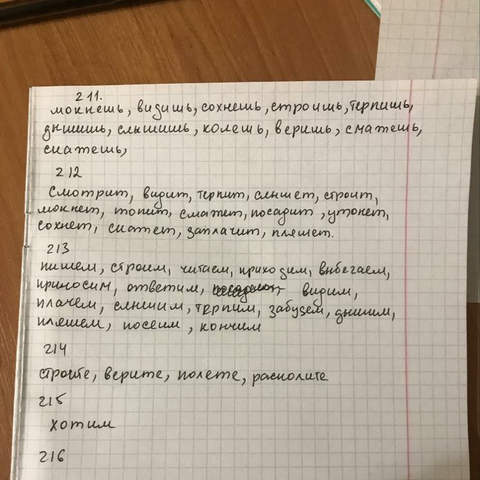 211.
мокнешь, видишь, сохнешь, строишь, терпишь,
дышишь, слышишь, колешь, веришь, смажешь,
скажешь,
212
Смотрит, видит, терпит, слышет, строит,
мокнет, топит, смажет, посадит, утонет,
сохнет, скажет, заплачит, пляшет.
213
пишем, строим, читаем, приходим, выбегаем,
приносим, ответим, видим,
плачем, слышим, терпим, забудем, дышим,
пляшем, посеим, кончим
214
строите, верите, полете, расколите
215
хотим
216